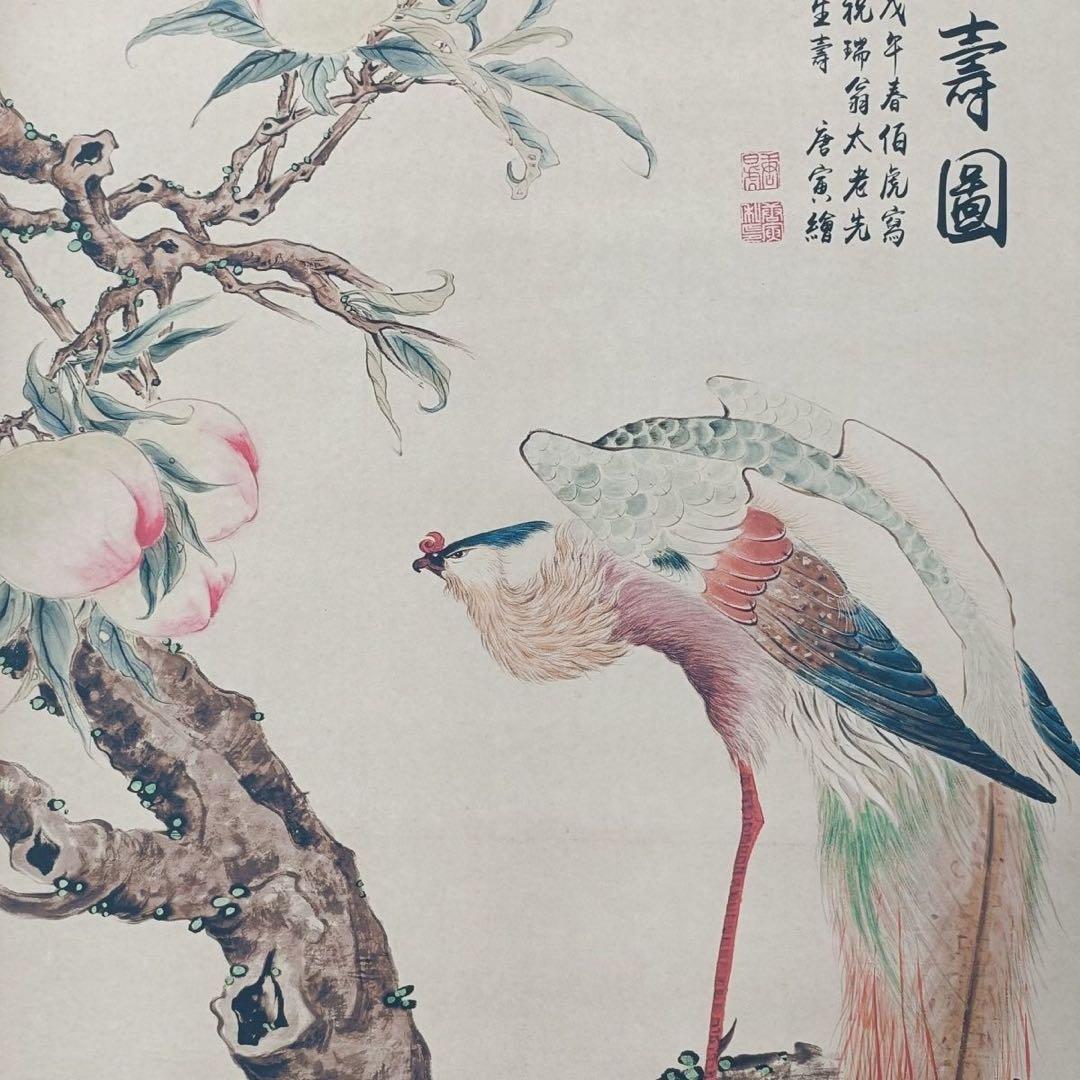 壽圖
戊午春伯虎寫
祝瑞翁太老先
生壽 唐寅繪